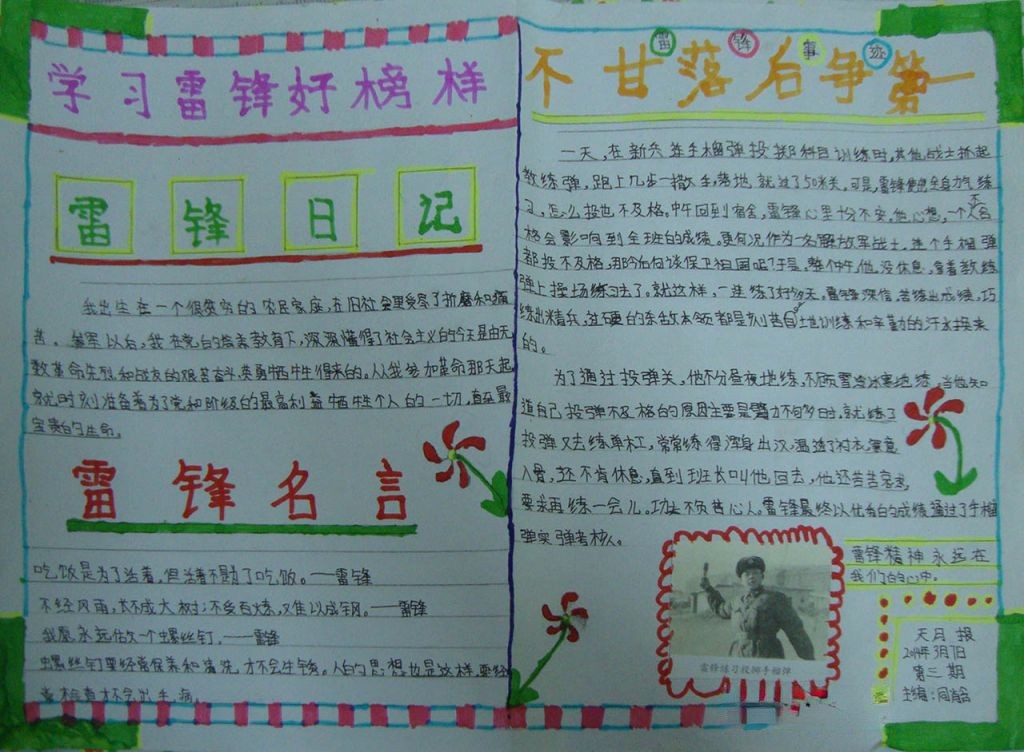 学习雷锋好榜样
雷锋日记
我出生在一个很贫穷的农民家庭,在旧社会里受尽了折磨和痛
苦。参军以后,我在党的培养教育下,深深懂得了社会主义的今天是由无
数革命先烈和战友的艰苦奋斗,英勇牺牲得来的。从我参加革命那天起,
就时刻准备着为了党和阶级的最高利益牺牲个人的一切,直至最
宝贵的生命。
雷锋名言
吃饭是为了活着,但活着不是为了吃饭。——雷锋
不经风雨,长不成大树;不受百炼,难以成钢。——雷锋
我愿永远做一个螺丝钉。——雷锋
螺丝钉要经常保养和清洗,才不会生锈。人的思想也是这样,要经
常检查才不会出毛病。
雷锋事迹
不甘落后争第一
一天,在新兵连手榴弹投掷科目训练时,其他战士抓起
教练弹,跑上几步一撒手,落地就过了50米关。可是,雷锋使出全身力气练
习,怎么投也不及格。中午回到宿舍,雷锋心里十分不安,他心想,一个人不合
格会影响到全班的成绩,更何况,作为一名解放军战士,连个手榴弹
都投不及格,那今后何谈保卫祖国呢?于是,整个中午,他没休息,拿着教练
弹上操场练习去了。就这样,一连练了好多天。雷锋深信,苦练出成绩,巧
练出精兵,过硬的杀敌本领都是刻苦自地训练和辛勤的汗水换来
的。
为了通过投弹关,他不分昼夜地练,不顾雪冷冰寒地练,当他知
道自己投弹不及格的原因主要是臂力不句多时,就练了
投弹又去练单杠,常常练得浑身出汗,湿透了衬衣,寒意
入骨,还不肯休息,直到班长叫他回去,他还苦苦哀求,
要求再练一会儿。功夫不负苦心人。雷锋最终以优秀的成绩通过了手榴
弹实弹考核。
雷锋练习投掷手榴弹
雷锋精神永远在
我们的心中。
天月报
2014年3月1日
第三期
主编: